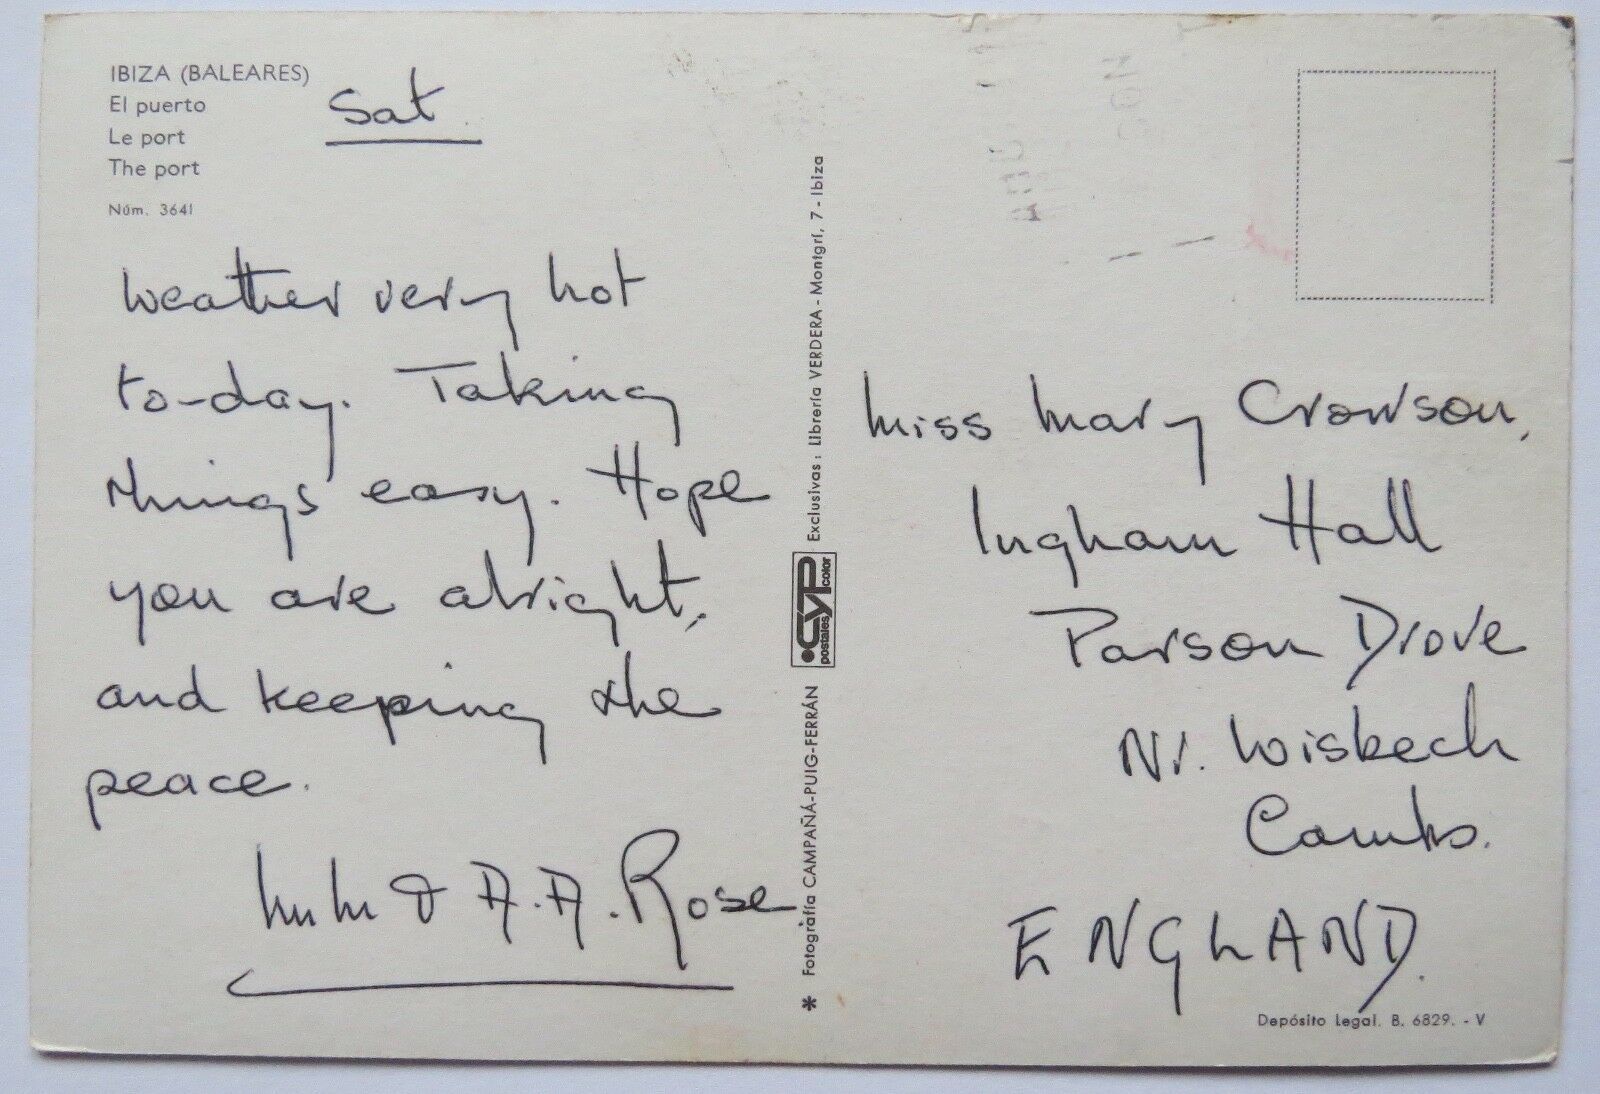 IBIZA (BALEARES)
El puerto
Le port
The port
Núm. 3641
Sat.
Weather very hot
to-day. Taking
things easy. Hope
you are alright,
and keeping the
peace.
& A. A. Rose.
Exclusivas: Librería VERDERA - Montgrí, 7 - Ibiza
CYP
postales color
* Fotografía CAMPAÑÁ-PUIG-FERRÁN
Miss Mary Crowson,
Ingham Hall
Parson Drove
Nr. Wisbech
Cambs.
ENGLAND.
Depósito Legal. B. 6829. - V